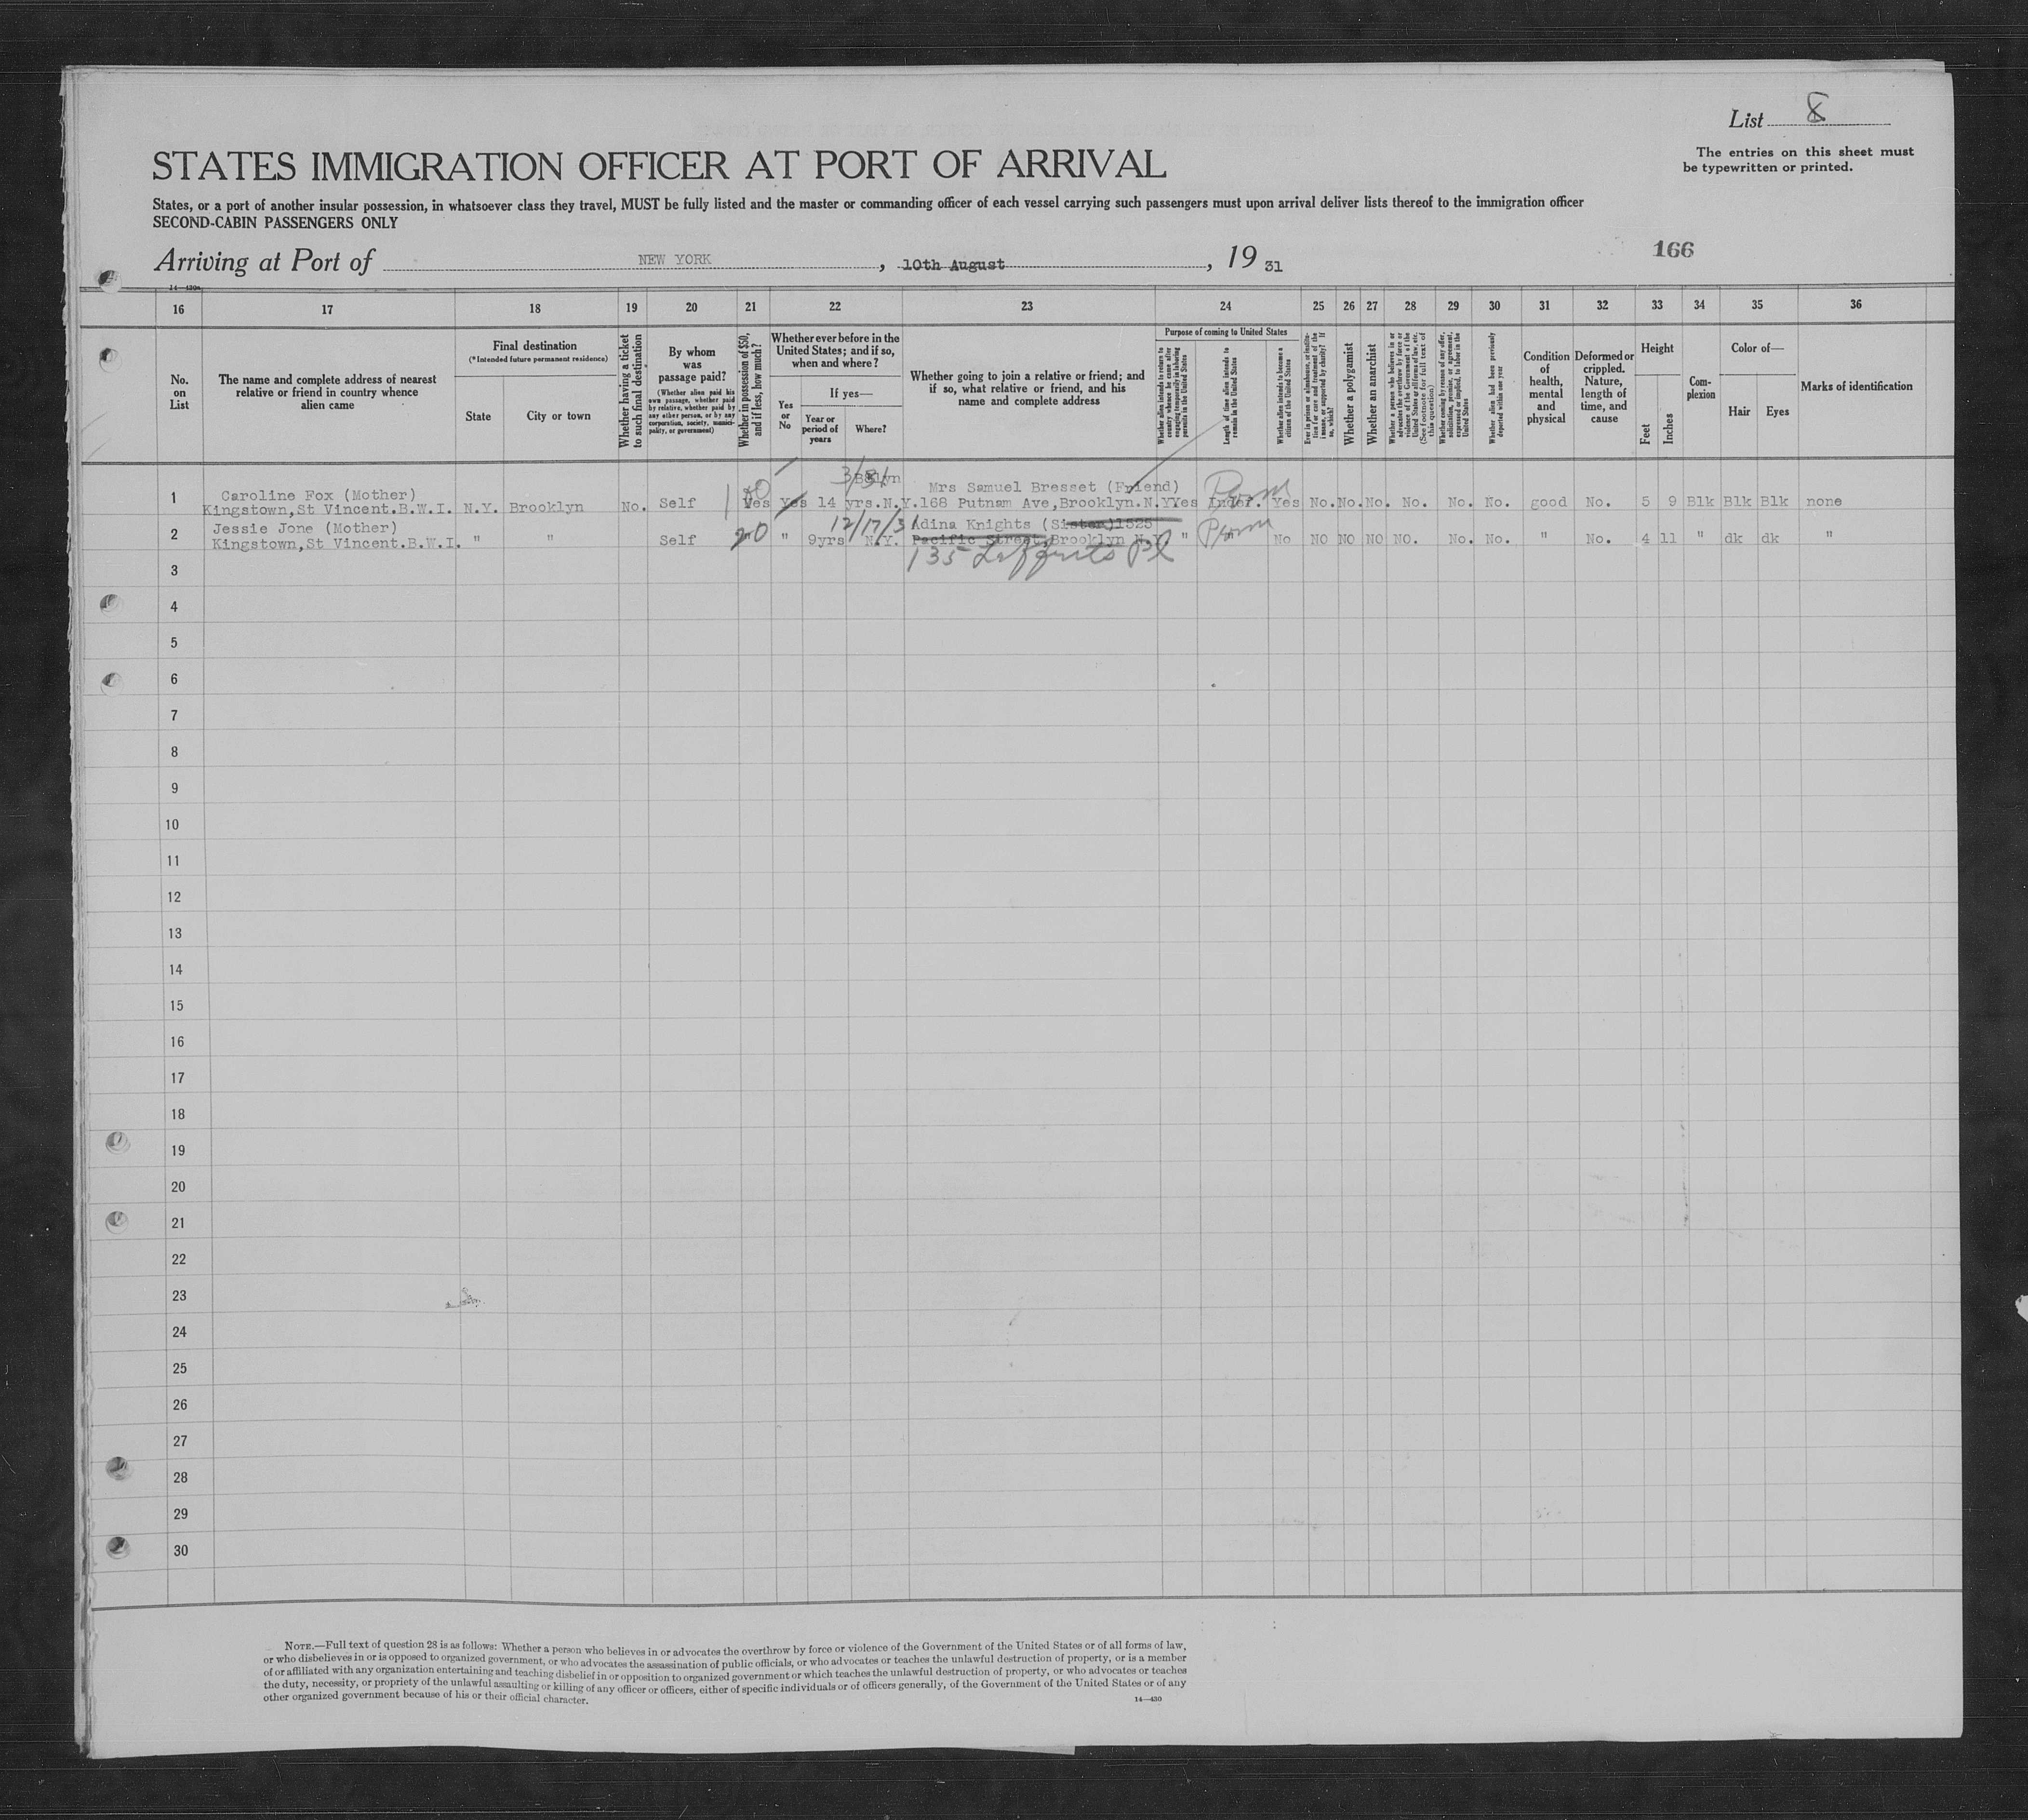 List 8
The entries on this sheet must
be typewritten or printed.
STATES IMMIGRATION OFFICER AT PORT OF ARRIVAL
States, or a port of another insular possession, in whatsoever class they travel, MUST be fully listed and the master or commanding officer of each vessel carrying such passengers must upon arrival deliver lists thereof to the immigration officer
SECOND-CABIN PASSENGERS ONLY
166
Arriving at Port of NEW YORK, 10th August, 19 31
14—430a
16 17 18 19 20 21 22 23 24 25 26 27 28 29 30 31 32 33 34 35 36
No. on List
The name and complete address of nearest relative or friend in country whence alien came
Final destination
(*Intended future permanent residence)
State
City or town
Whether having a ticket to such final destination
By whom was passage paid?
(Whether alien paid his own passage, whether paid by relative, whether paid by any other person, or by any corporation, society, municipality, or government)
Whether in possession of $50, and if less, how much?
Whether ever before in the United States; and if so, when and where?
Yes or No
If yes—
Year or period of years
Where?
Whether going to join a relative or friend; and if so, what relative or friend, and his name and complete address
Purpose of coming to United States
Whether alien intends to return to country whence he came after engaging temporarily in laboring pursuits in the United States
Length of time alien intends to remain in the United States
Whether alien intends to become a citizen of the United States
Ever in prison or almshouse, or institution for care and treatment of the insane, or supported by charity? If so, which?
Whether a polygamist
Whether an anarchist
Whether a person who believes in or advocates the overthrow by force or violence of the Government of the United States or all forms of law, etc. (See footnote for full text of this question)
Whether coming by reason of any offer, solicitation, promise, or agreement, expressed or implied, to labor in the United States
Whether alien had been previously deported within one year
Condition of health, mental and physical
Deformed or crippled. Nature, length of time, and cause
Height
Feet
Inches
Complexion
Color of—
Hair
Eyes
Marks of identification
3/31
Bklyn
1 Caroline Fox (Mother) Mrs Samuel Bresset (Friend) Perm
Kingstown,St Vincent.B.W.I. N.Y. Brooklyn No. Self Yes Yes 14 yrs.N.Y.168 Putnam Ave,Brooklyn.N.Y Yes Indef. Yes No. No. No. No. No. No. good No. 5 9 Blk Blk Blk none
2 Jessie Jone (Mother) 12/17/31 Adina Knights (Sister)1525 Perm
Kingstown,St Vincent.B.W.I. " " Self 20 " 9yrs N.Y. Pacific Street,Brooklyn N.Y. " " No NO NO NO NO. No. No. " No. 4 11 " dk dk "
135 Lefferts Pl
3
4
5
6
7
8
9
10
11
12
13
14
15
16
17
18
19
20
21
22
23
24
25
26
27
28
29
30
NOTE.—Full text of question 28 is as follows: Whether a person who believes in or advocates the overthrow by force or violence of the Government of the United States or of all forms of law,
or who disbelieves in or is opposed to organized government, or who advocates the assassination of public officials, or who advocates or teaches the unlawful destruction of property, or is a member
of or affiliated with any organization entertaining and teaching disbelief in or opposition to organized government or which teaches the unlawful destruction of property, or who advocates or teaches
the duty, necessity, or propriety of the unlawful assaulting or killing of any officer or officers, either of specific individuals or of officers generally, of the Government of the United States or of any
other organized government because of his or their official character.
14—430